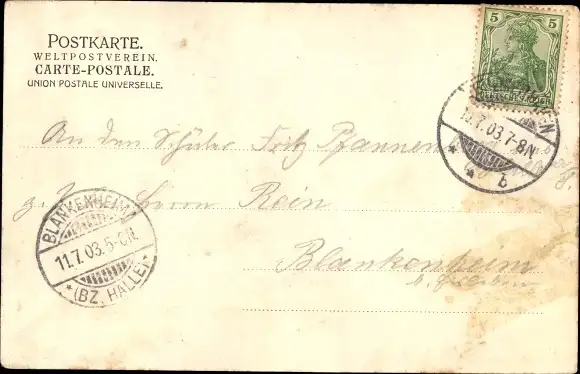 POSTKARTE.
WELTPOSTVEREIN.
CARTE-POSTALE.
UNION POSTALE UNIVERSELLE.
5 5
10.7.03.7-8N.
b
An den Schüler Fritz
Herrn Rein
Blankenheim
BLANKENHEIM
11.7.03.5-6N.
*(BZ. HALLE)*